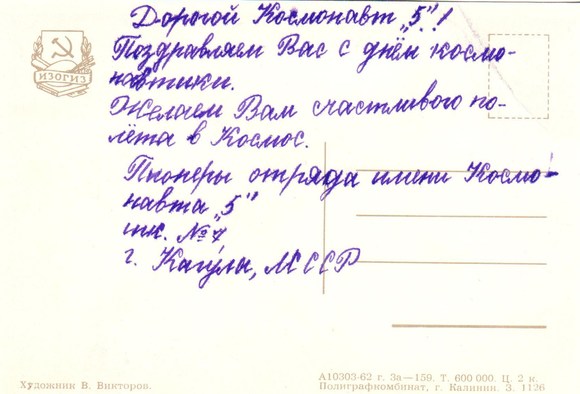 Дорогой Космонавт „5"!
Поздравляем Вас с днём космо-
навтики.
Желаем Вам счастливого по-
лёта в Космос.
Пионеры отряда имени Космо-
навта „5"
шк. №7
г. Кагулы, МССР
ИЗОГИЗ
Художник В. Викторов.
А10303-62 г. За—159. Т. 600 000. Ц. 2 к.
Полиграфкомбинат, г. Калинин. З. 1126